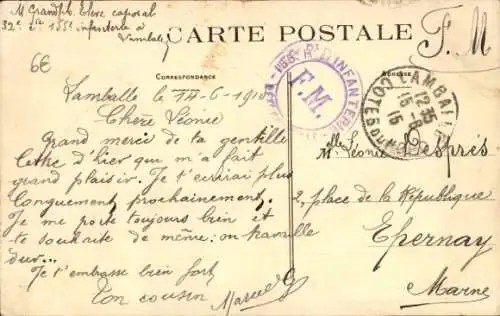 M. Grandph. Elève caporal
32e Cie 155e infanterie à
Lamballe
CARTE POSTALE
F. M
6E
CORRESPONDANCE
ADRESSE
D'INFANTERIE
F.M.
LAMBALLE
12 35
15 -6
15
COTES DU NORD
Lamballe le 14-6-1915
Chère Léonie
Grand merci de ta gentille
lettre d'hier qui m'a fait
grand plaisir. Je t'écrirai plus
longuement prochainement.
Je me porte toujours bien et
te souhaite de même; on travaille
dur...
Je t'embrasse bien fort
Ton cousin Marcel G
Melle Léonie Després
2, place de la République
Epernay
Marne